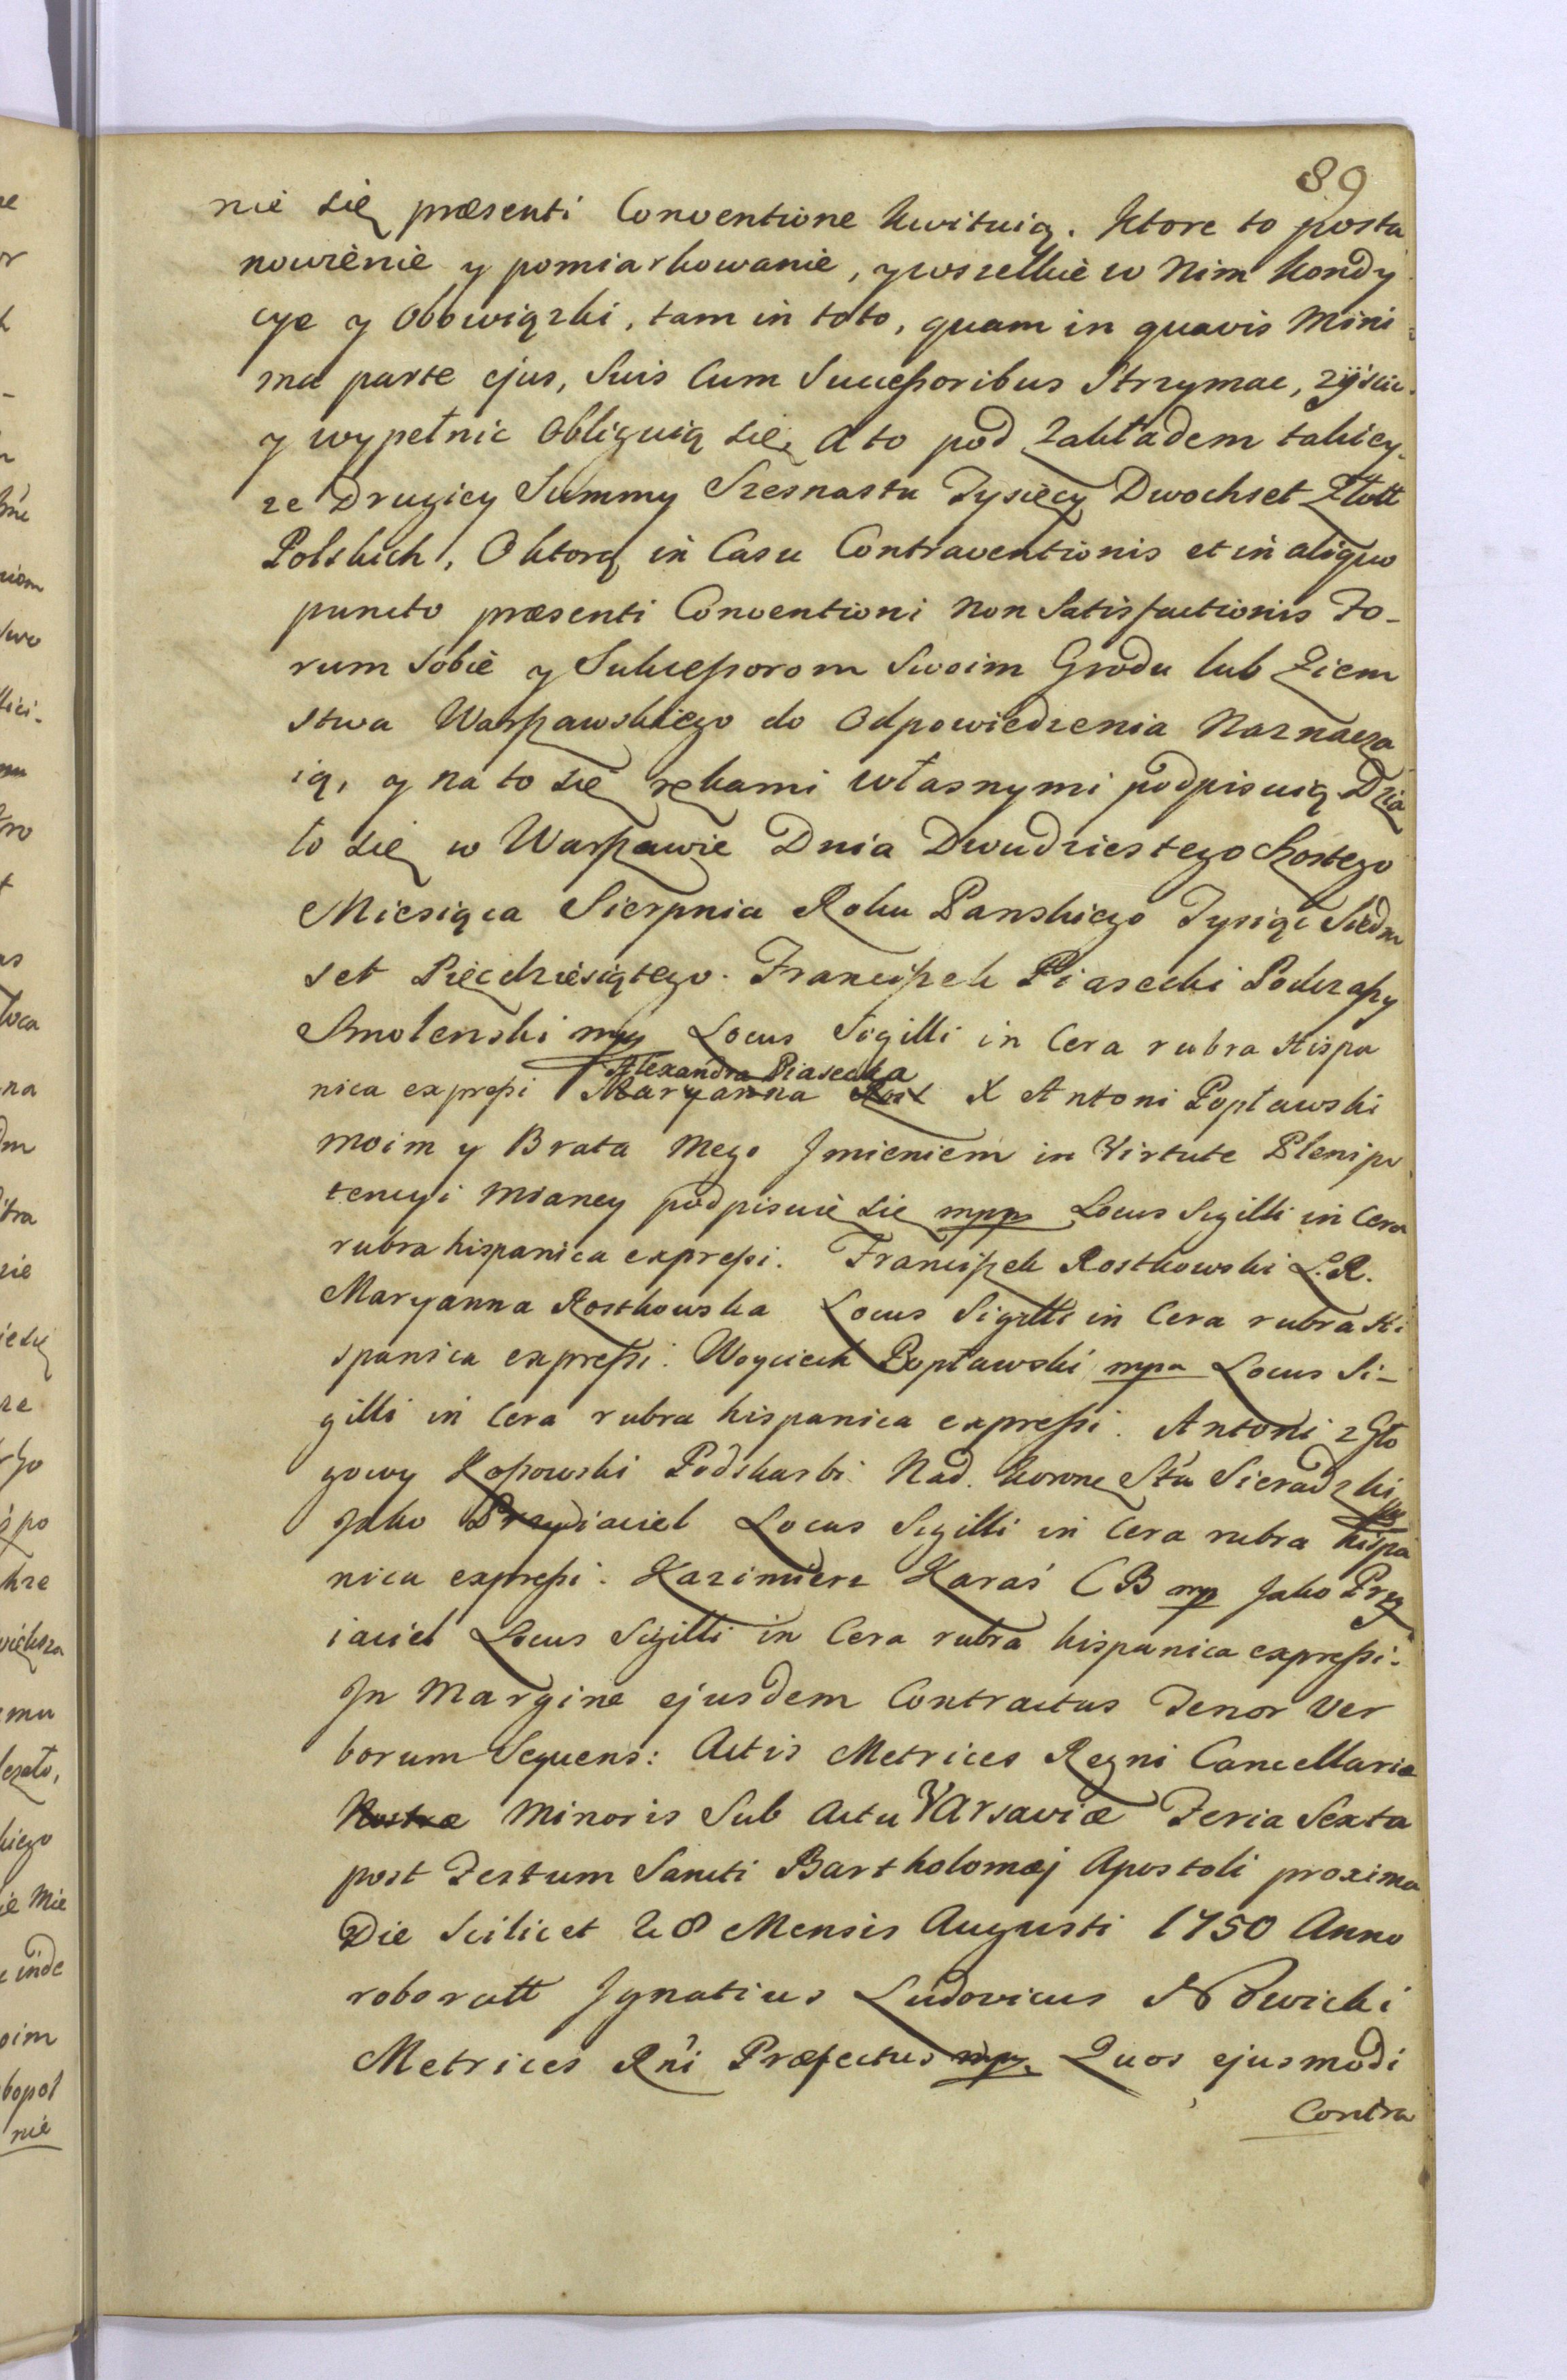 89
nie się præsenti Conventione kwituią. Ktore to posta
nowienie y pomiarkowanie, y wszelkie w Nim kondy
cye y Obowiązki, tam in toto, quam in quavis Mini=
ma parte ejus, Suis Cum Successoribus Strzymac, ziścic
y wypełnic Obliguią się, a to pod zakładem takiey-
ze Drugiey Summy Szesnastu Tysięcy Dwochset Złott
Polskich, Oktorą in Casu Contraventionis et in aliquo
puncto præsenti Conventioni Non Satisfactionis Fo-
rum Sobie y Sukcessorom Swoim Grodu lub Ziem
stwa Warszawskiego do Odpowiedzenia Naznacza
ią, y na to się rękami własnymi podpisuią Dzia
ło się w Warszawie Dnia Dwudziestego Szostego
Miesiąca Sierpnia Roku Panskiego Tysiąc Siedm
set Pięcdziesiątego. Franciszek Piasecki Podczaszy
Smolenski mp Locus Sigilli in Cera rubra Hispa
Alexandra Piasecka
nica expressi Maryanna Rost X Antoni Popławski
moim y Brata Mego Jmieniem in Virtute Plenipo
tencyi Mianey podpisuie się mpp Locus Sigilli in Cera
rubra hispanica expressi. Franciszek Rostkowski L.R.
Maryanna Rostkowska Locus Sigilli in Cera rubra Hi
spanica expressi. Woyciech Popławski mpa Locus Si-
gilli in Cera rubra hispanica expressi. Antoni z Gło
gowy Kossowski Podskarbi Nad. Koronę Sta Sieradzki
Jako Przyiaciel Locus Sigilli in Cera rubra hispa
nica expressi. Kazimierz Karaś CB mp Jako Przy
iaciel Locus Sigilli in Cera rubra hispanica expressi.
Jn Margine ejusdem Contractus Tenor Ver
borum Sequens: Actis Metrices Regni Cancellariæ
Nostræ Minoris Sub Actu Varsaviæ Feria Sexta
post Festum Sancti Bartholomæj Apostoli proxima
Die Scilicet 28 Mensis Augusti 1750 Anno
roboratt Jgnatius Ludovicus Nowicki
Metrices Rñi Præfectus mp. Quos ejusmodi
Contra